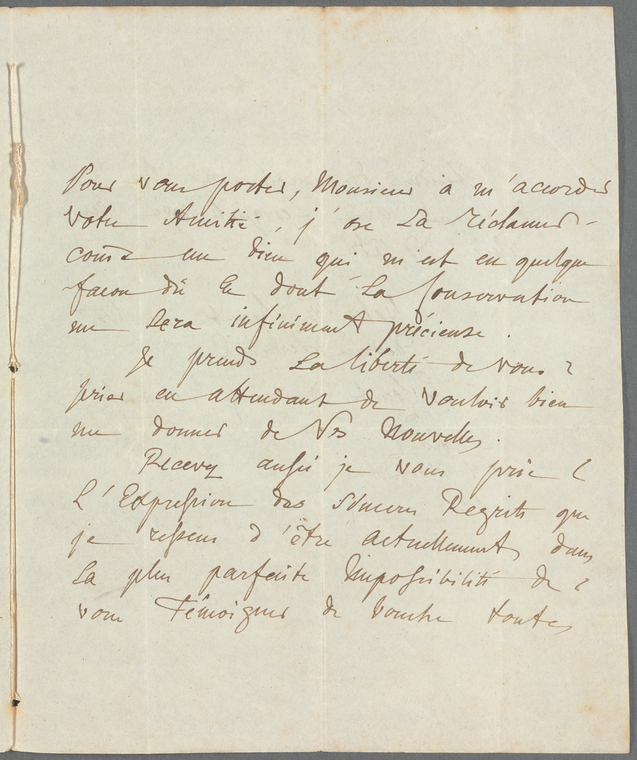 Pour vous porter, Monsieur a m'accorder
votre Amitié, j'ose La réclamer
comē un bien qui m'est en quelque
facon dû Et dont La Conservation
me Sera infiniment précieuse.
Je prends La liberté de vous
prier en attendant de vouloir bien
me donner de Vos Nouvelles.
Recevez aussi je vous prie
L'Expression des Sincers Regrets que
je ressens d'être actuellement dans
La plus parfaite Impossibilité de
vous Témoigner de bouche toute